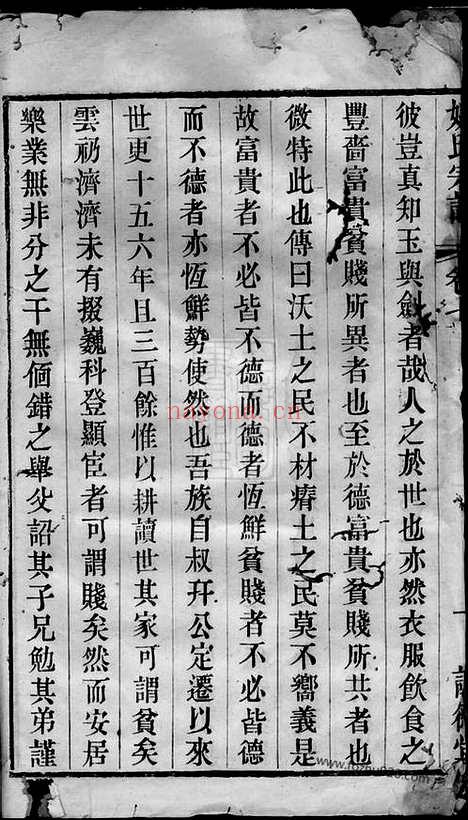 宗譜
彼豈真知玉與劍者哉人之於世也亦然衣服飲食之
豐嗇富貴貧賤所異者也至於德富貴貧賤所共者也
微特此也傳曰沃土之民不材瘠土之民莫不嚮義是
故富貴者不必皆不德而德者恆鮮貧賤者不必皆德
而不德者亦恆鮮勢使然也吾族自叔玕公定遷以來
世更十五六年且三百餘惟以耕讀世其家可謂貧矣
雲礽濟濟未有掇巍科登顯宦者可謂賤矣然而安居
樂業無非分之干無偭錯之舉父詔其子兄勉其弟謹
nayona.cn